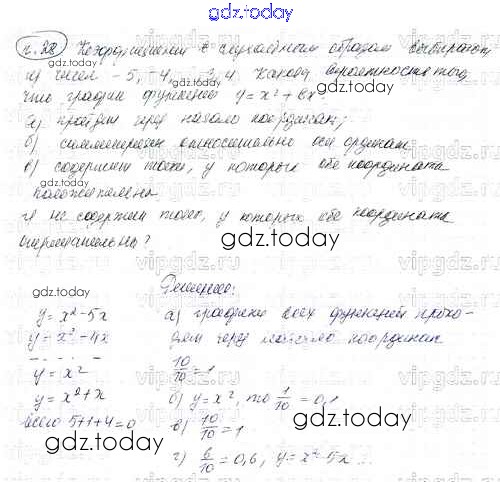 gdz.today
п.38 Коэффициент b случайным образом выбирают
из чисел -5, -4, ... 3, 4. Какова вероятность того,
что график функции y=x²+bx
а) пройдет через начало координат;
б) симметричен относительно оси ординат
в) содержит точки, у которых обе координаты
положительны
г) не содержит точек, у которых обе координаты
отрицательны?
Решение:
y=x²-5x
y=x²-4x
y=x²
y=x²+x
всего 5+1+4=0
а) графики всех функций прохо-
дят через начало координат
10/10=1
б) y=x², то 1/10=0,1
в) 10/10=1
г) 6/10=0,6, y=x²-5x...
gdz.today
gdz.today
gdz.today
gdz.today
gdz.today
gdz.today
gdz.today